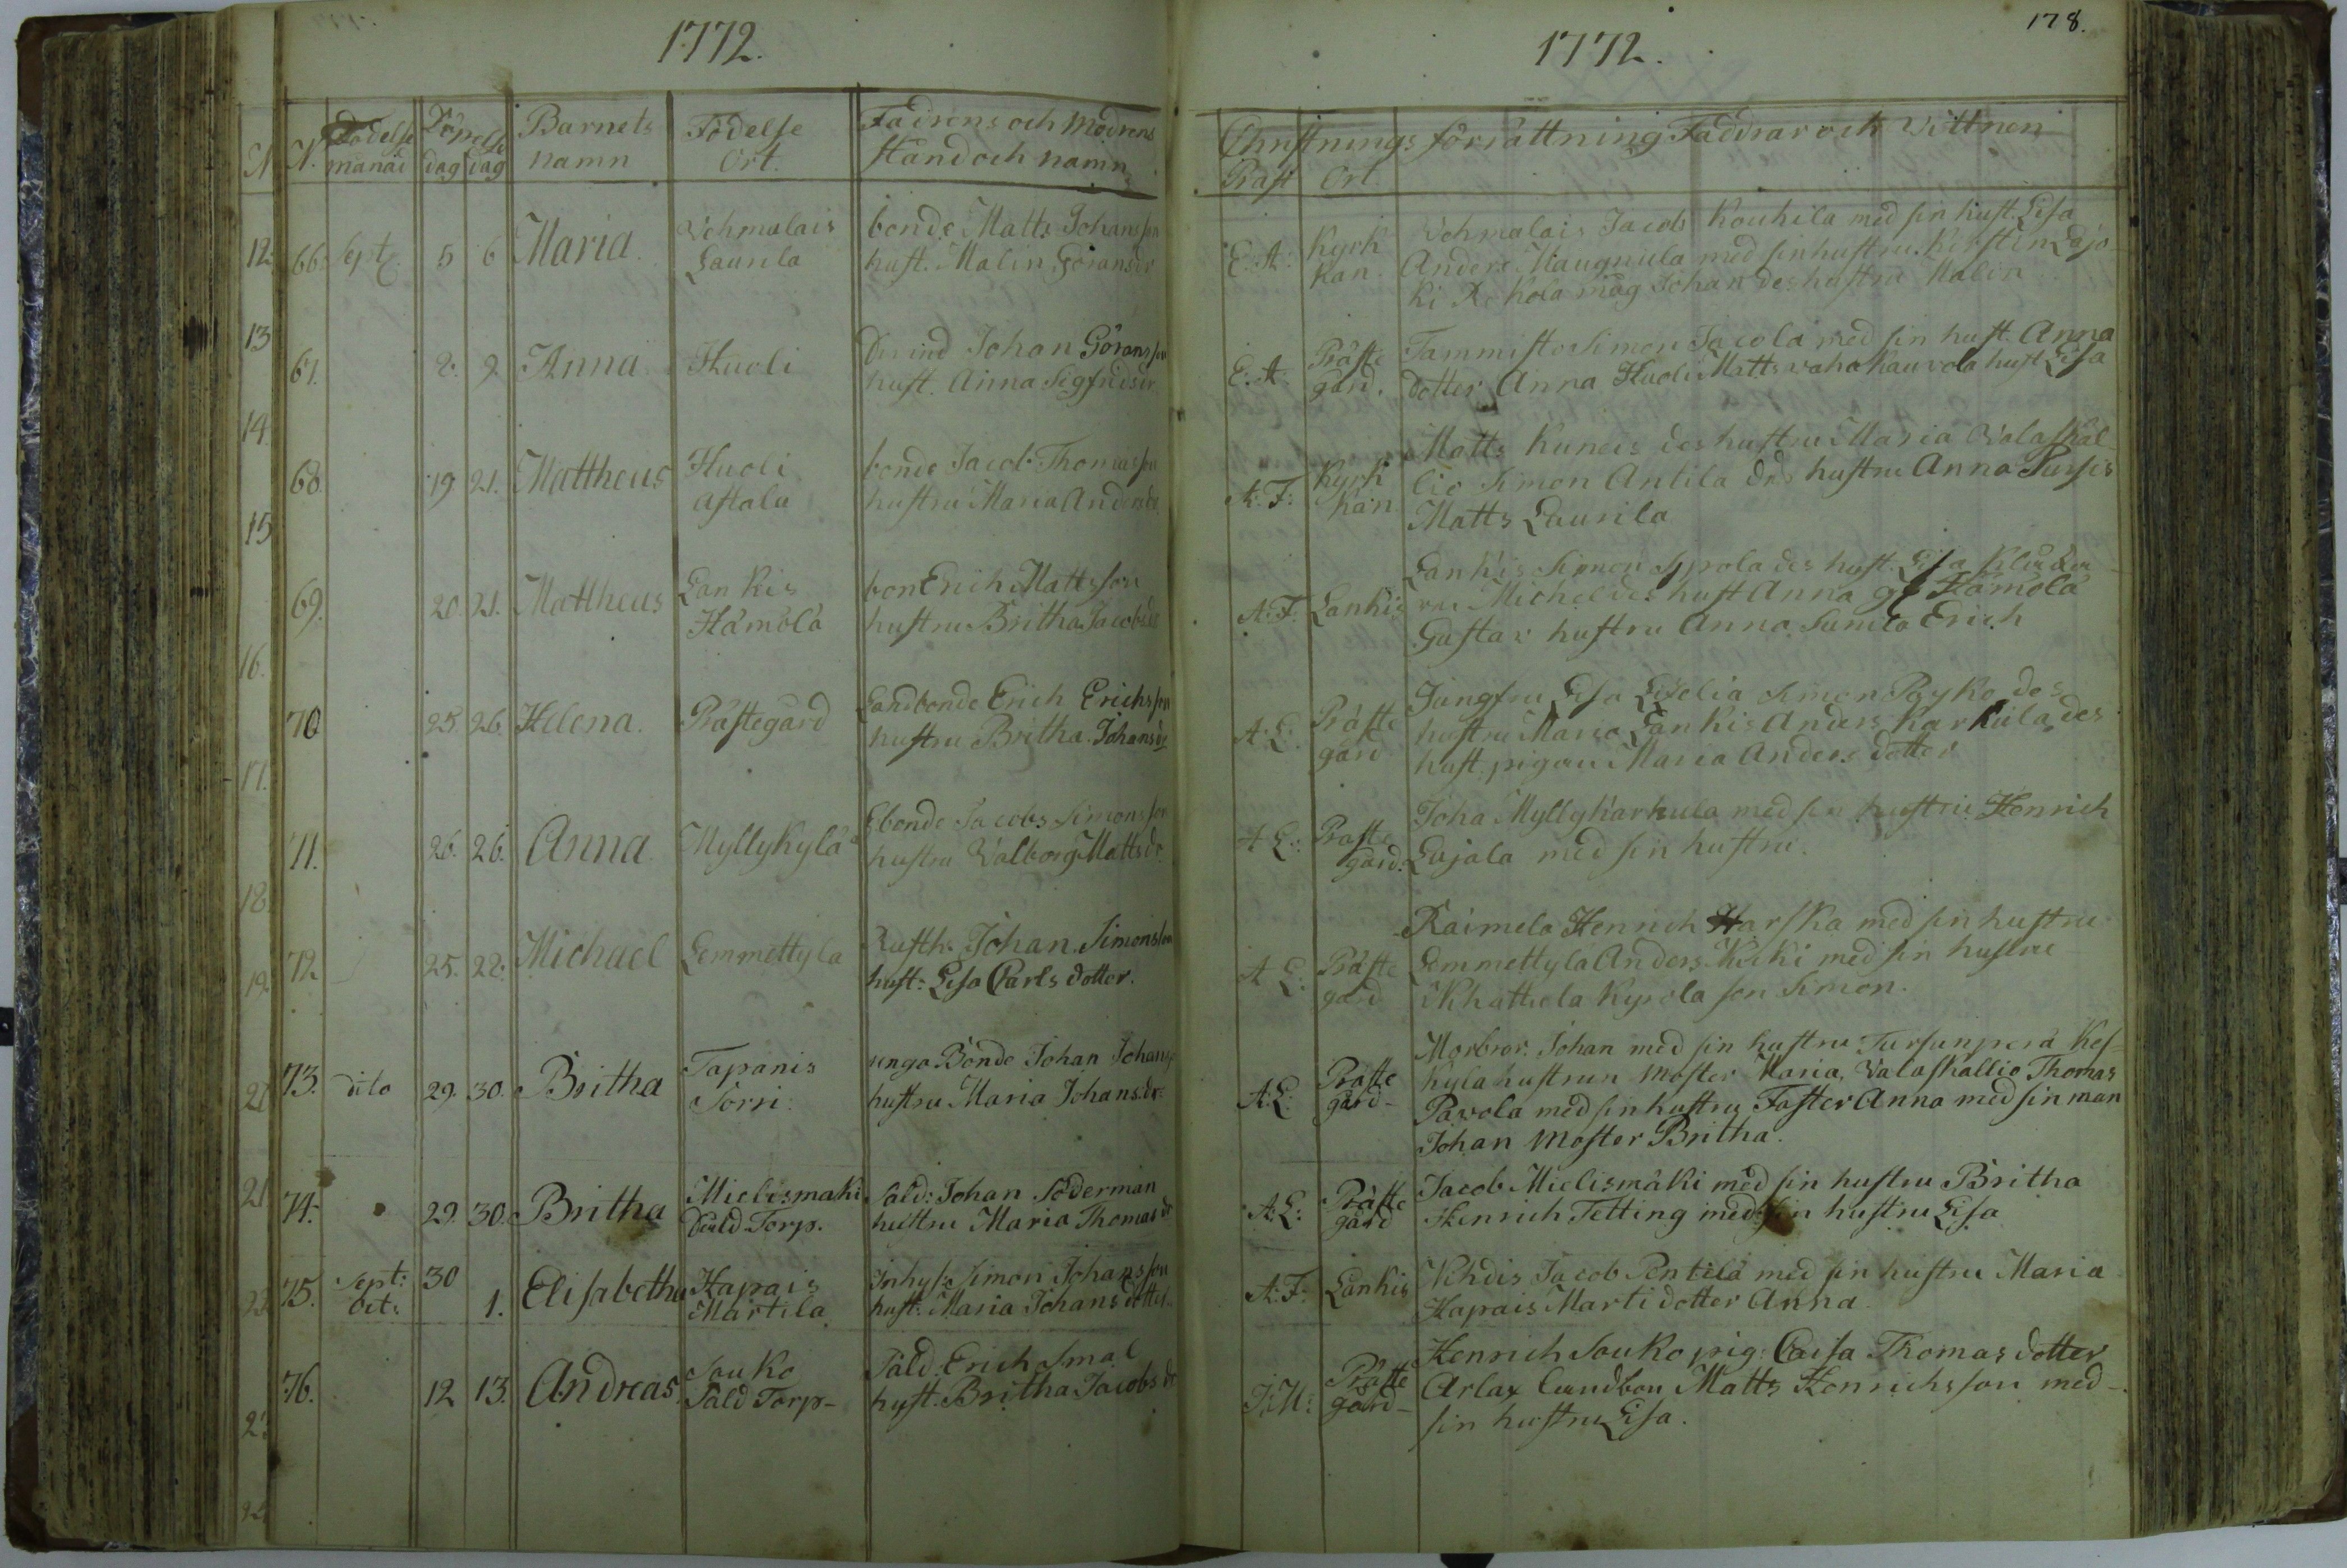 1772.
N. Födelse månad dag Döpelse dag Barnets namn Födelse Ort. Fadrens och Modrens stånd och namn
66. Sept 5 6 Maria. Vehmalais Laurila bonde Matts Johansson
hust. Malin Göransdr
67. 8. 9 Anna Huoli Johan Göransson
hust. Anna Sigfridsdr
68. 19. 21. Mattheus Huoli Astala bonde Jacob Thomasson
hustru Maria Andersdr.
69. 20. 21. Mattheus Lankis Hämölä bon Erich Mattsson
hustru Britha Jacobsdr
70 25. 26. Helena. Prästegård Landbonde Erich Erichsson
hustru Britha Johansdr
71. 26. 26. Anna Myllykylä Ebonde Jacobs Simonsson
hustru Valborg Mattsdr
72 25. 28. Michael Lemmettylä Rusth. Johan Simonsson
hust: Lisa Carlsdotter.
73. dito 29. 30. Britha Tapanis Sorri. unga Bonde Johan Johanss
hustru Maria Johansdr
74. 29. 30. Britha Mielismäki Sald Torp. Sald: Johan Söderman
hustru Maria Thomasdr
75. Sept: 30 Oct: 1. Elisabetha Hapais Martila. Inhys: Simon Johansson
hust: Maria Johansdotter
76. 12 13. Andreas. Souko Sald Torp- Sald. Erich Smal
hust. Britha Jacobsdr
178.
1772.
Christnings förrättning Faddrar och Vittnen
Präst Ort.
E. A. Kyrkkan. Vehmalais Jacob Kouhila med sin hust. Lisa
Anders Maunula med sin hustru Kirstin Lajo-
ki Rekola måg Johan des hustru Malin
E. A. Prästegård. Tammisto Simon Jacola med sin hust. Anna
dotter Anna Huoli Matts vaha Kauvola hust Lisa
A. F. Kyrkkan. Matts Kuneis des hustru Maria Valaskal
lio Simon Antila des hustru Anna
Matts Laurila
A. F. Lankis Lankis Simon Sipola des hust. Lisa
Michel des hust Anna Hämölä
Gustav hustru Anna Erich
A. L. Prästegård Jungfru Lisa Simon Pöykö des
hustru Maria Lankis Anders Karhula des
hust pigan Maria Anders dotter
A L: Prästegård. Joha Myllykarhula med sin hustru Henrich
Lajala med sin hustru.
A L: Prästegård Kaimela Henrich Harska med sin hustru
Lemmettylä Anders Kicki med sin hustru
Kypola son Simon.
A. L: Prästegård- Morbror Johan med sin hustru Tursunperä Kes
kyla hustrun Moster Maria, Valaskallio Thomas
Pavola med sin hustru Faster Anna med sin man
Johan Moster Britha.
A. L: Prästegård Jacob Mielismäki med sin hustru Britha
Henrich Tetting med sin hustru Lisa
A. F: Lankis Jacob Pentilä med sin hustru Maria
Hapais Marti dotter Anna
F. M: Prästegård- Henrich Souko pig. Caisa Thomas dotter
Arlax Landbon Matts Henrichsson med-
sin hustru Lisa.